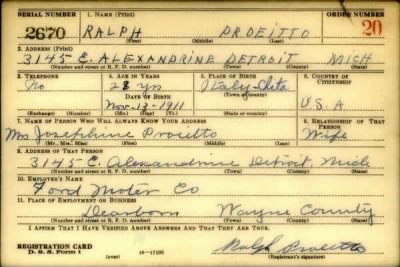 SERIAL NUMBER 1. NAME (Print) ORDER NUMBER
2670 RALPH PROEITTO 20
(First) (Middle) (Last)
2. ADDRESS (Print)
3145 E. ALEXANDRINE DETROIT MICH
(Number and street or R. F. D. number) (Town) (County) (State)
3. TELEPHONE 4. AGE IN YEARS 5. PLACE OF BIRTH 6. COUNTRY OF CITIZENSHIP
No 28 yrs Italy
DATE OF BIRTH (Town or county)
Nov-13-1911 U.S.A
(Exchange) (No.) (Mo.) (Day) (Yr.) (State or country)
7. NAME OF PERSON WHO WILL ALWAYS KNOW YOUR ADDRESS 8. RELATIONSHIP OF THAT PERSON
Mrs Josephine Proietto Wife
(Mr., Mrs., Miss) (First) (Middle) (Last)
9. ADDRESS OF THAT PERSON
3145 E. Alexandrine Detroit, Mich
(Number and street or R. F. D. number) (Town) (County) (State)
10. EMPLOYER'S NAME
Ford Motor Co
11. PLACE OF EMPLOYMENT OR BUSINESS
Dearborn Wayne County
(Number and street or R. F. D. number) (Town) (County) (State)
I AFFIRM THAT I HAVE VERIFIED ABOVE ANSWERS AND THAT THEY ARE TRUE.
REGISTRATION CARD Ralph Proietto
D. S. S. Form 1 (over) 16-17105 (Registrant's signature)